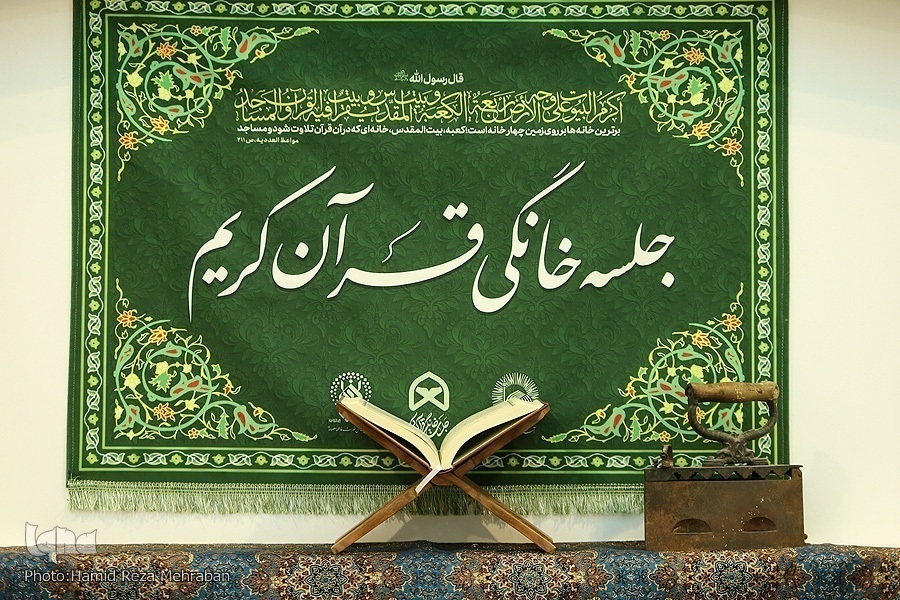 قال رسول الله ﷺ
اكرم البيوت على وجه الارض اربعة: الكعبة و بيت المقدس و بيت يقرا فيه القرآن و المساجد
برترین خانه‌ها بر روی زمین چهار خانه است: کعبه، بیت المقدس، خانه‌ای که در آن قرآن تلاوت شود و مساجد
مواعظ العددیه، ص ۲۱۱
جلسه خانگی قرآن کریم
iqna
Photo:Hamid Reza Mehraban